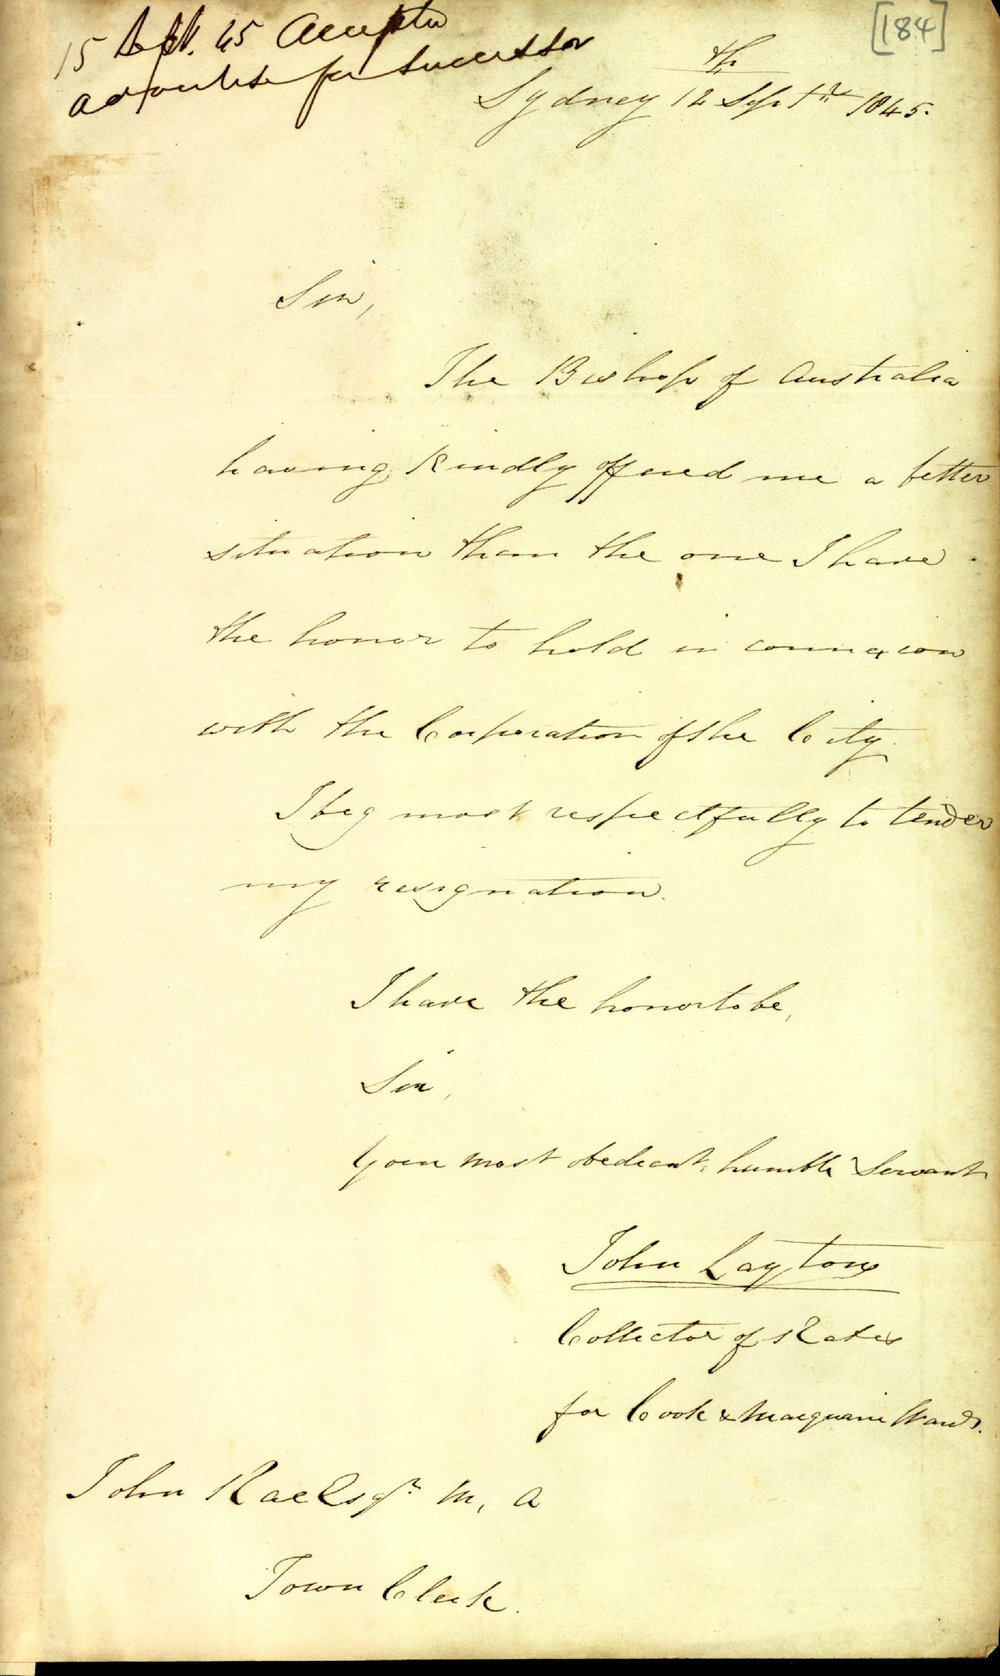 [184]
15 Sept. 45 Accepted
advertise for successor
Sydney 12th Septr 1845.
Sir,
The Bishop of Australia
having kindly offered me a better
situation than the one I have
the honor to hold in connexion
with the Corporation of the City.
I beg most respectfully to tender
my resignation.
I have the honor to be,
Sir,
Your most obedient, humble Servant
John Layton
Collector of Rates
for Cook & Macquarie Wards.
John Rae Esqr. M, A
Town Clerk.